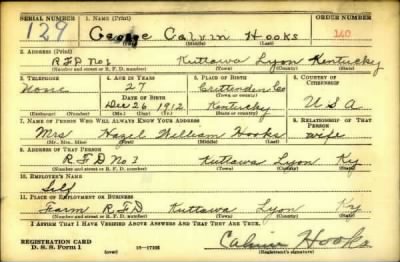 SERIAL NUMBER 1. NAME (Print) ORDER NUMBER
129 George Calvin Hooks 140
(First) (Middle) (Last)
2. ADDRESS (Print)
RFD No 1 Kuttawa Lyon Kentucky
(Number and street or R. F. D. number) (Town) (County) (State)
3. TELEPHONE 4. AGE IN YEARS 5. PLACE OF BIRTH 6. COUNTRY OF CITIZENSHIP
None 27 Crittenden Co
DATE OF BIRTH (Town or county)
Dec 26 1912 Kentucky U S A
(Exchange) (Number) (Mo.) (Day) (Yr.) (State or country)
7. NAME OF PERSON WHO WILL ALWAYS KNOW YOUR ADDRESS 8. RELATIONSHIP OF THAT PERSON
Mrs Hazel William Hooks Wife
(Mr., Mrs., Miss) (First) (Middle) (Last)
9. ADDRESS OF THAT PERSON
RFD No 1 Kuttawa Lyon Ky
(Number and street or R. F. D. number) (Town) (County) (State)
10. EMPLOYER'S NAME
Self
11. PLACE OF EMPLOYMENT OR BUSINESS
Farm RFD Kuttawa Lyon Ky
(Number and street or R. F. D. number) (Town) (County) (State)
I AFFIRM THAT I HAVE VERIFIED ABOVE ANSWERS AND THAT THEY ARE TRUE.
REGISTRATION CARD
D. S. S. Form 1 (over) Calvin Hooks
(Registrant's signature)